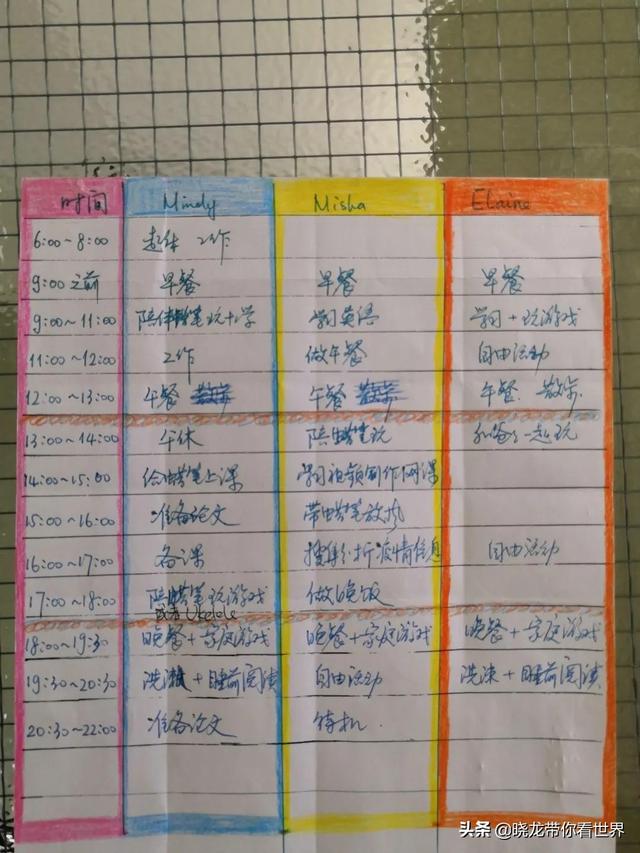 时间 Mindy Misha Elaine
6:00~8:00 起床 工作
9:00之前 早餐 早餐 早餐
9:00~11:00 陪伴蜡笔玩+学 学习英语 学习+玩游戏
11:00~12:00 工作 做午餐 自由活动
12:00~13:00 午餐 午餐 午餐、散步
13:00~14:00 午休 陪蜡笔玩 和爸爸一起玩
14:00~15:00 给蜡笔上课 学习视频制作网课
15:00~16:00 准备论文 带蜡笔放风
16:00~17:00 备课 搜集分析疫情信息 自由活动
17:00~18:00 陪蜡笔玩游戏 做晚饭
或者Ukelele
18:00~19:30 晚餐+家庭游戏 晚餐+家庭游戏 晚餐+家庭游戏
19:30~20:30 洗漱+睡前阅读 自由活动 洗漱+睡前阅读
20:30~22:00 准备论文 待机
头条 @晓龙带你看世界